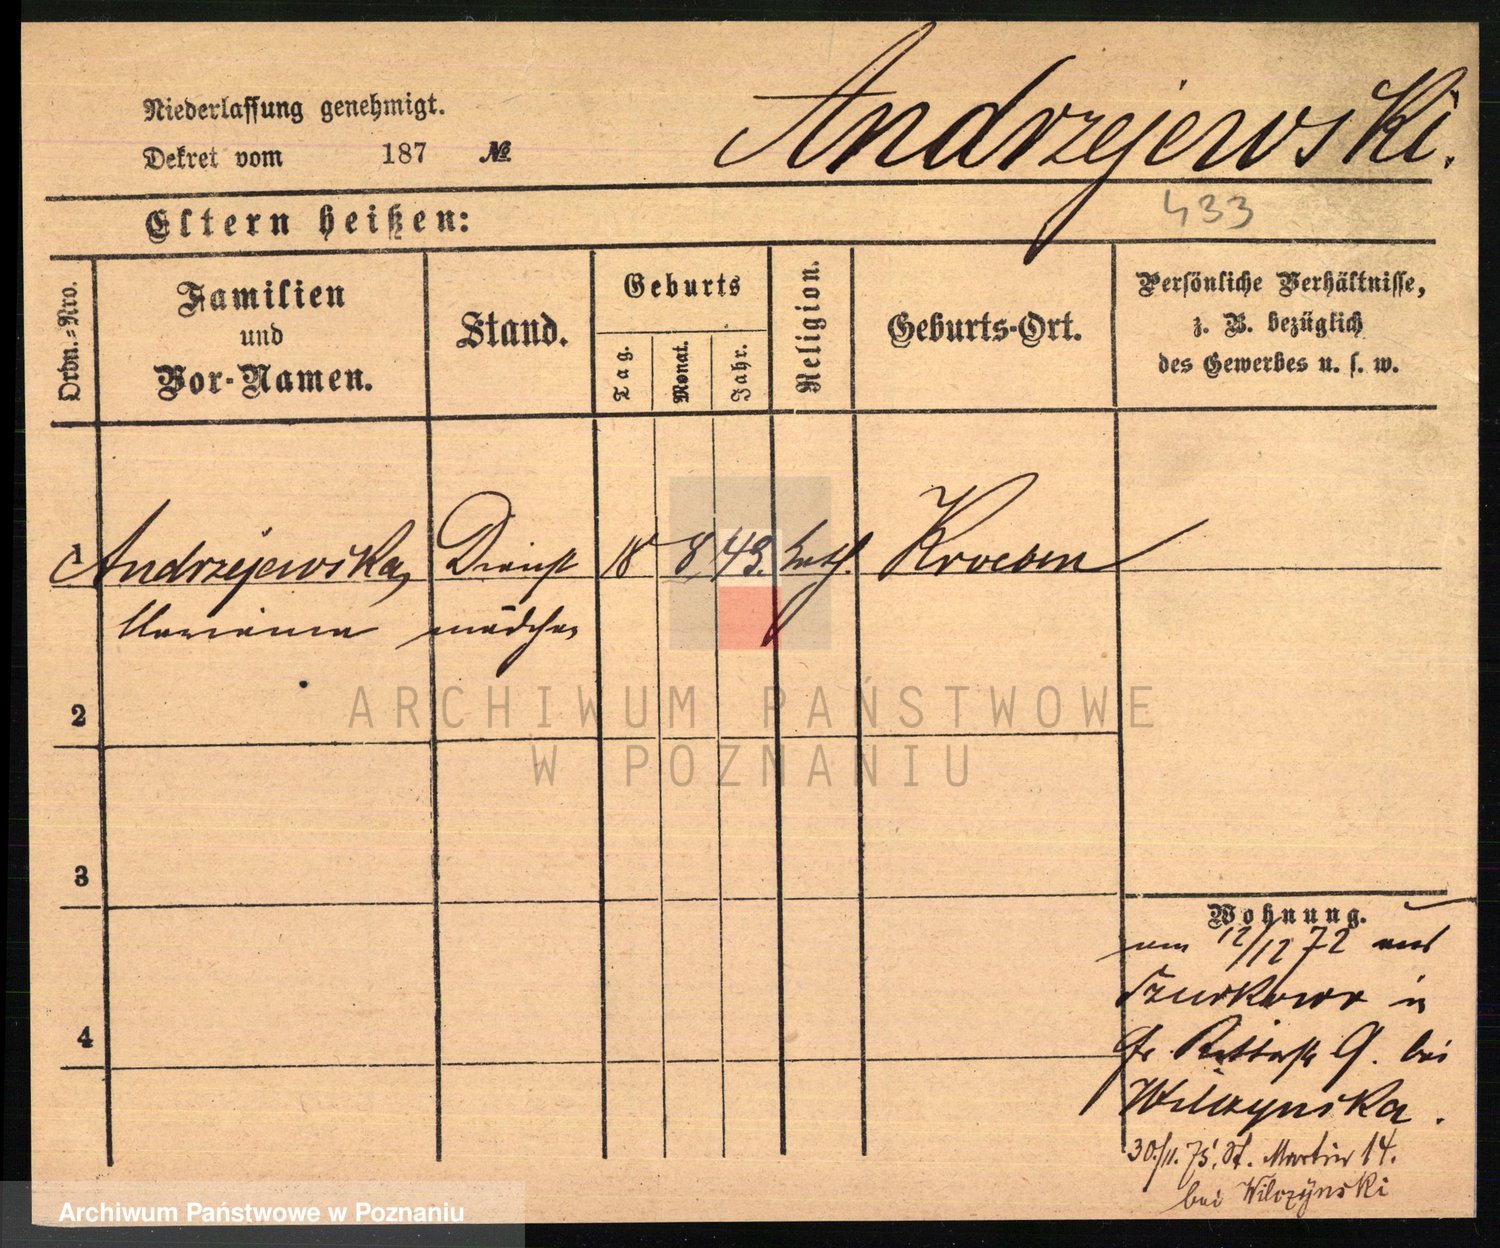 Andrzejewski.
Niederlassung genehmigt.
Dekret vom 187 №
433
Eltern heißen:
Ordn.=Nro.
Familien
und
Vor-Namen.
Stand.
Geburts
Tag.
Monat.
Jahr.
Religion.
Geburts-Ort.
Persönliche Verhältnisse,
z. B. bezüglich
des Gewerbes u. s. w.
1 Andrzejewska, Dienst 18 8 49. kath. Kroeben
Marianna mädchen
2
3
4
Wohnung.
am 12/12 72 aus
Szurkowo in
Gr Ritterstr 9. bei
Wilczynska.
30./11. 75. St. Martin 14.
bei Wilczynski
ARCHIWUM PAŃSTWOWE
W POZNANIU
Archiwum Państwowe w Poznaniu